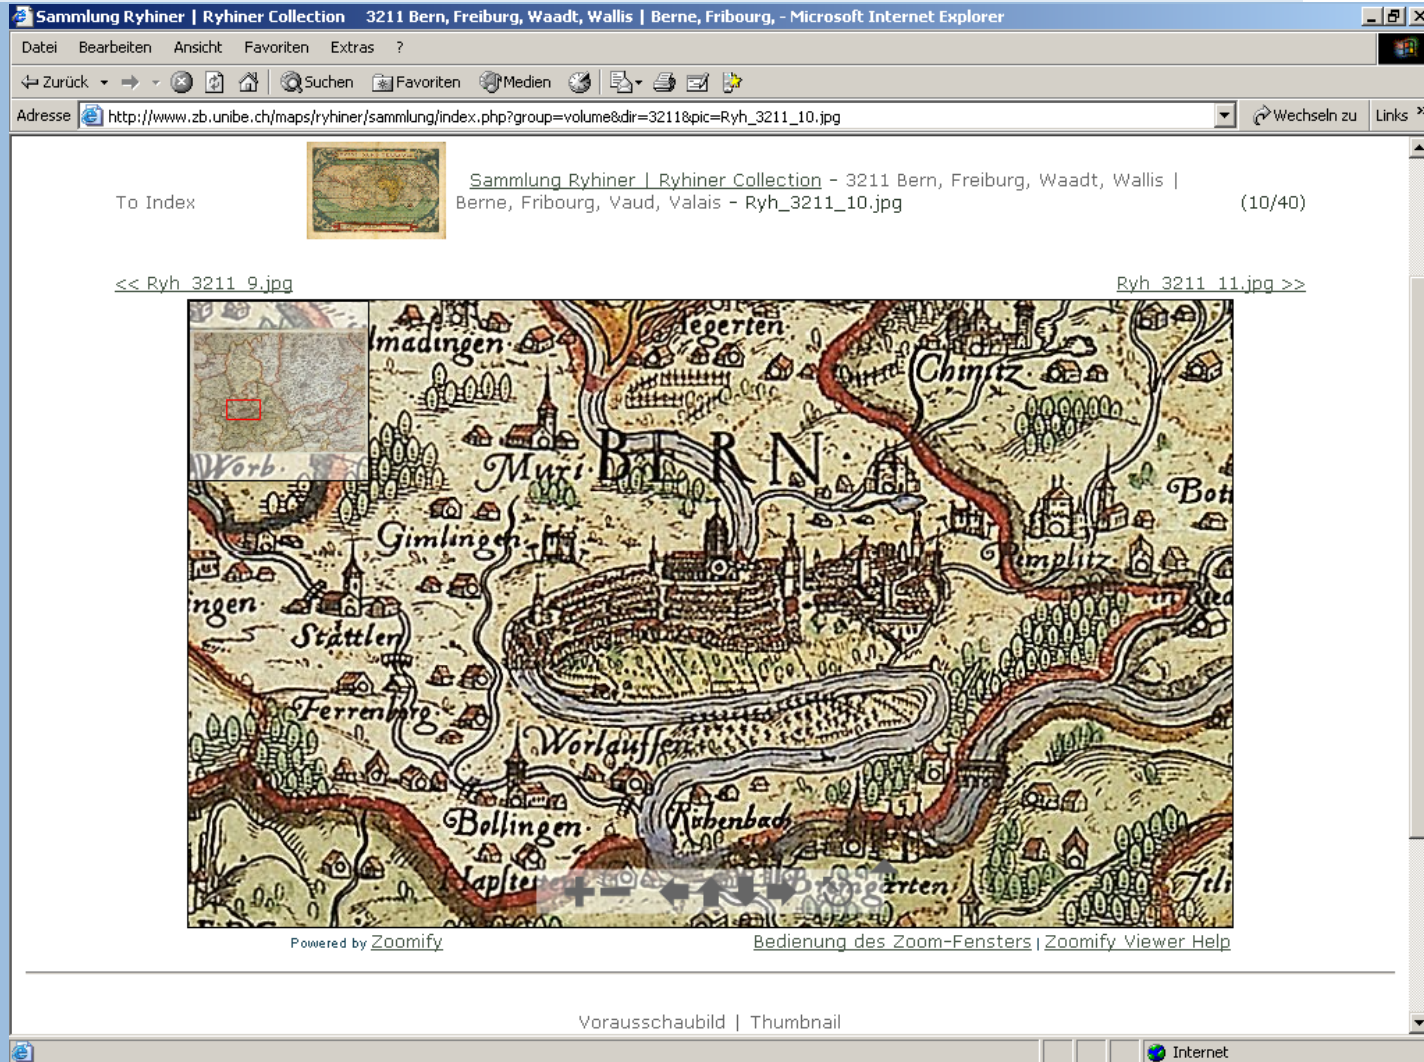 Sammlung Ryhiner | Ryhiner Collection    3211 Bern, Freiburg, Waadt, Wallis | Berne, Fribourg, - Microsoft Internet Explorer
Datei Bearbeiten Ansicht Favoriten Extras ?
Zurück Suchen Favoriten Medien
Adresse http://www.zb.unibe.ch/maps/ryhiner/sammlung/index.php?group=volume&dir=3211&pic=Ryh_3211_10.jpg Wechseln zu Links »
To Index
Sammlung Ryhiner | Ryhiner Collection - 3211 Bern, Freiburg, Waadt, Wallis |
Berne, Fribourg, Vaud, Valais - Ryh_3211_10.jpg
(10/40)
<< Ryh_3211_9.jpg
Ryh_3211_11.jpg >>
lmadingen
Tegerten
Chinitz
Worb.
Muri
BERN.
Bott
Gimlingen
Pimplitz
ngen
Stättlen
Ferrenberg
Worlauffen
Bollingen
Richenbach
Hapsteten
Bremgarten
Powered by Zoomify
Bedienung des Zoom-Fensters | Zoomify Viewer Help
Vorausschaubild | Thumbnail
Internet